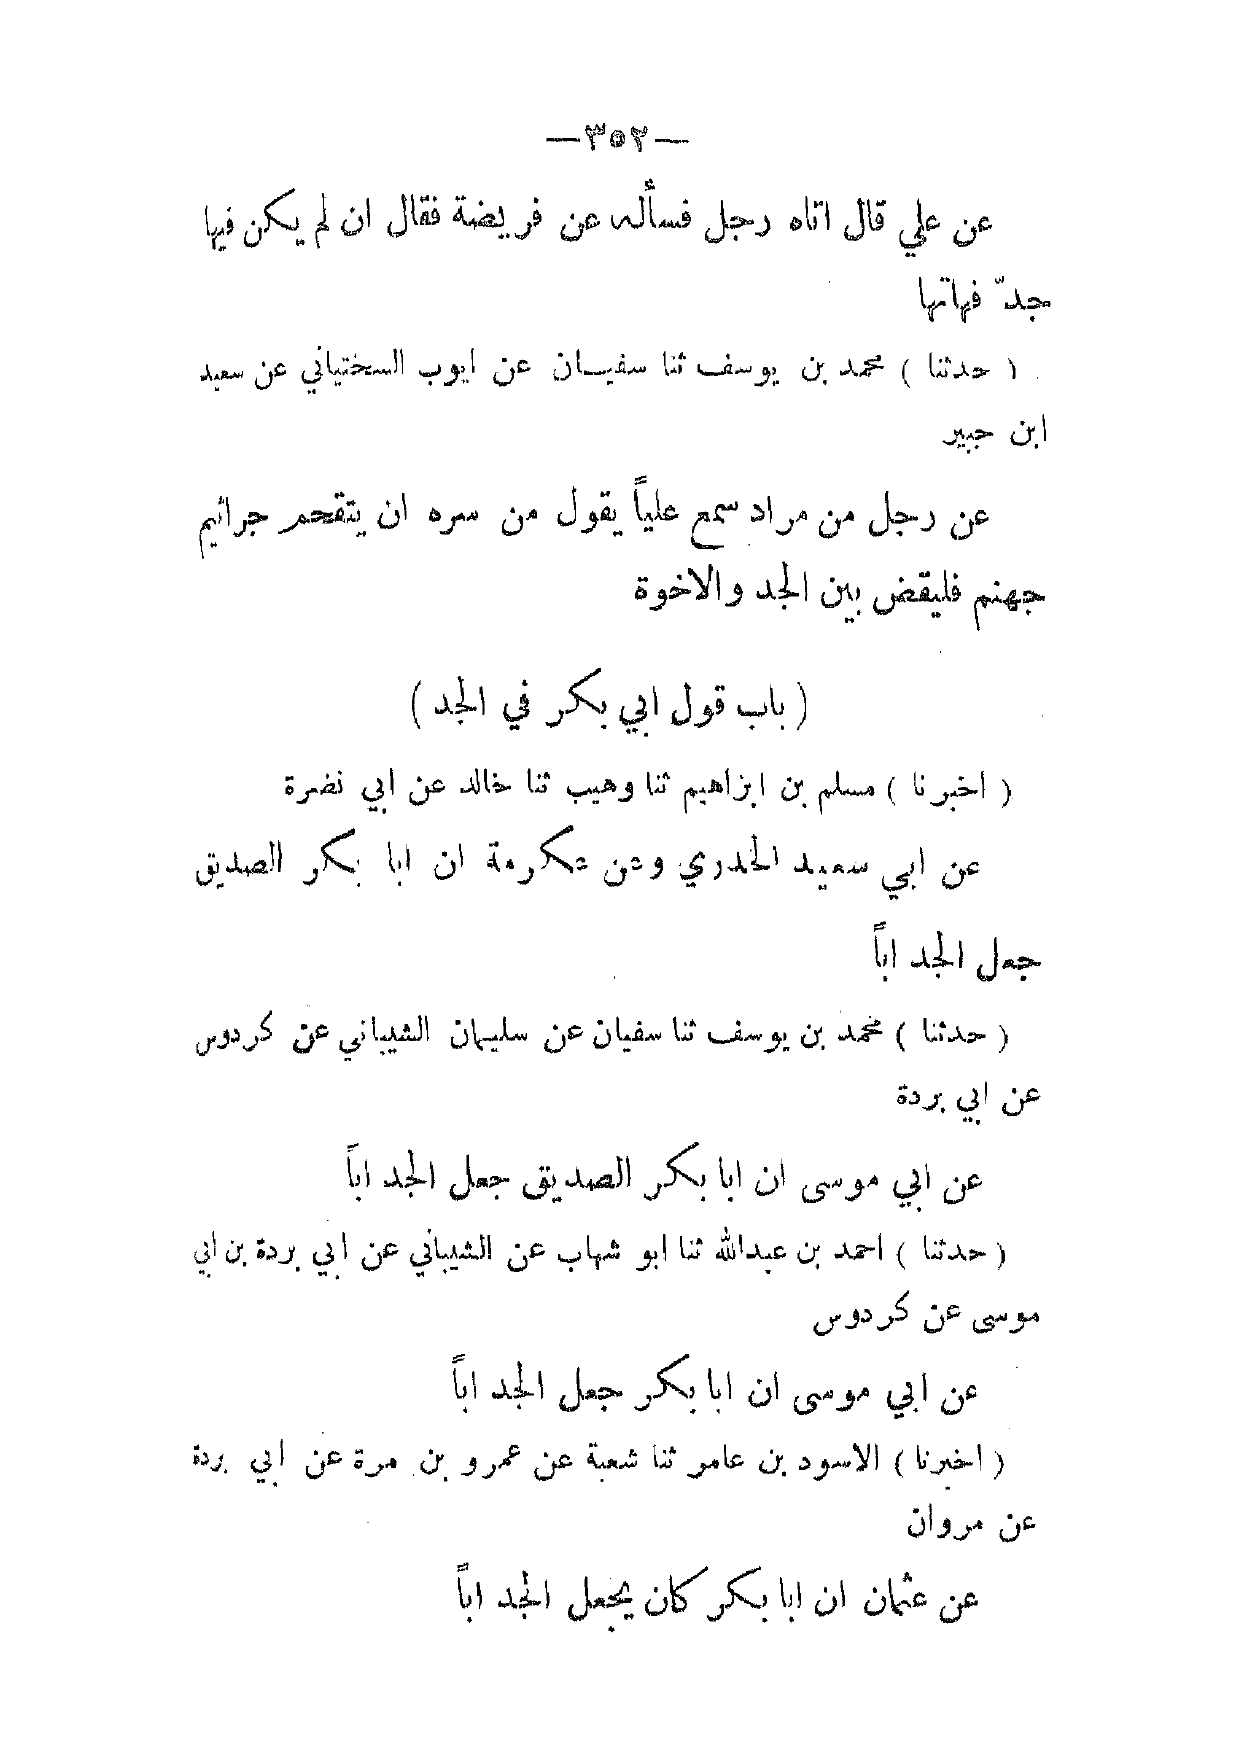 —٣٥٢—
عن علي قال اتاه رجل فسأله عن فريضة فقال ان لم يكن فيها
جدّ فهاتها
( حدثنا ) محمد بن يوسف ثنا سفيان عن ايوب السختياني عن سعيد
ابن جبير
عن رجل من مراد سمع علياً يقول من سره ان يتقحم جراثيم
جهنم فليقض بين الجد والاخوة
( باب قول ابي بكر في الجد )
( اخبرنا ) مسلم بن ابراهيم ثنا وهيب ثنا خالد عن ابي نضرة
عن ابي سعيد الخدري وعن عكرمة ان ابا بكر الصديق
جعل الجد اباً
( حدثنا ) محمد بن يوسف ثنا سفيان عن سليمان الشيباني عن كردوس
عن ابي بردة
عن ابي موسى ان ابا بكر الصديق جعل الجد اباً
( حدثنا ) احمد بن عبدالله ثنا ابو شهاب عن الشيباني عن ابي بردة بن ابي
موسى عن كردوس
عن ابي موسى ان ابا بكر جعل الجد اباً
( اخبرنا ) الاسود بن عامر ثنا شعبة عن عمرو بن مرة عن ابي بردة
عن مروان
عن عثمان ان ابا بكر كان يجعل الجد اباً